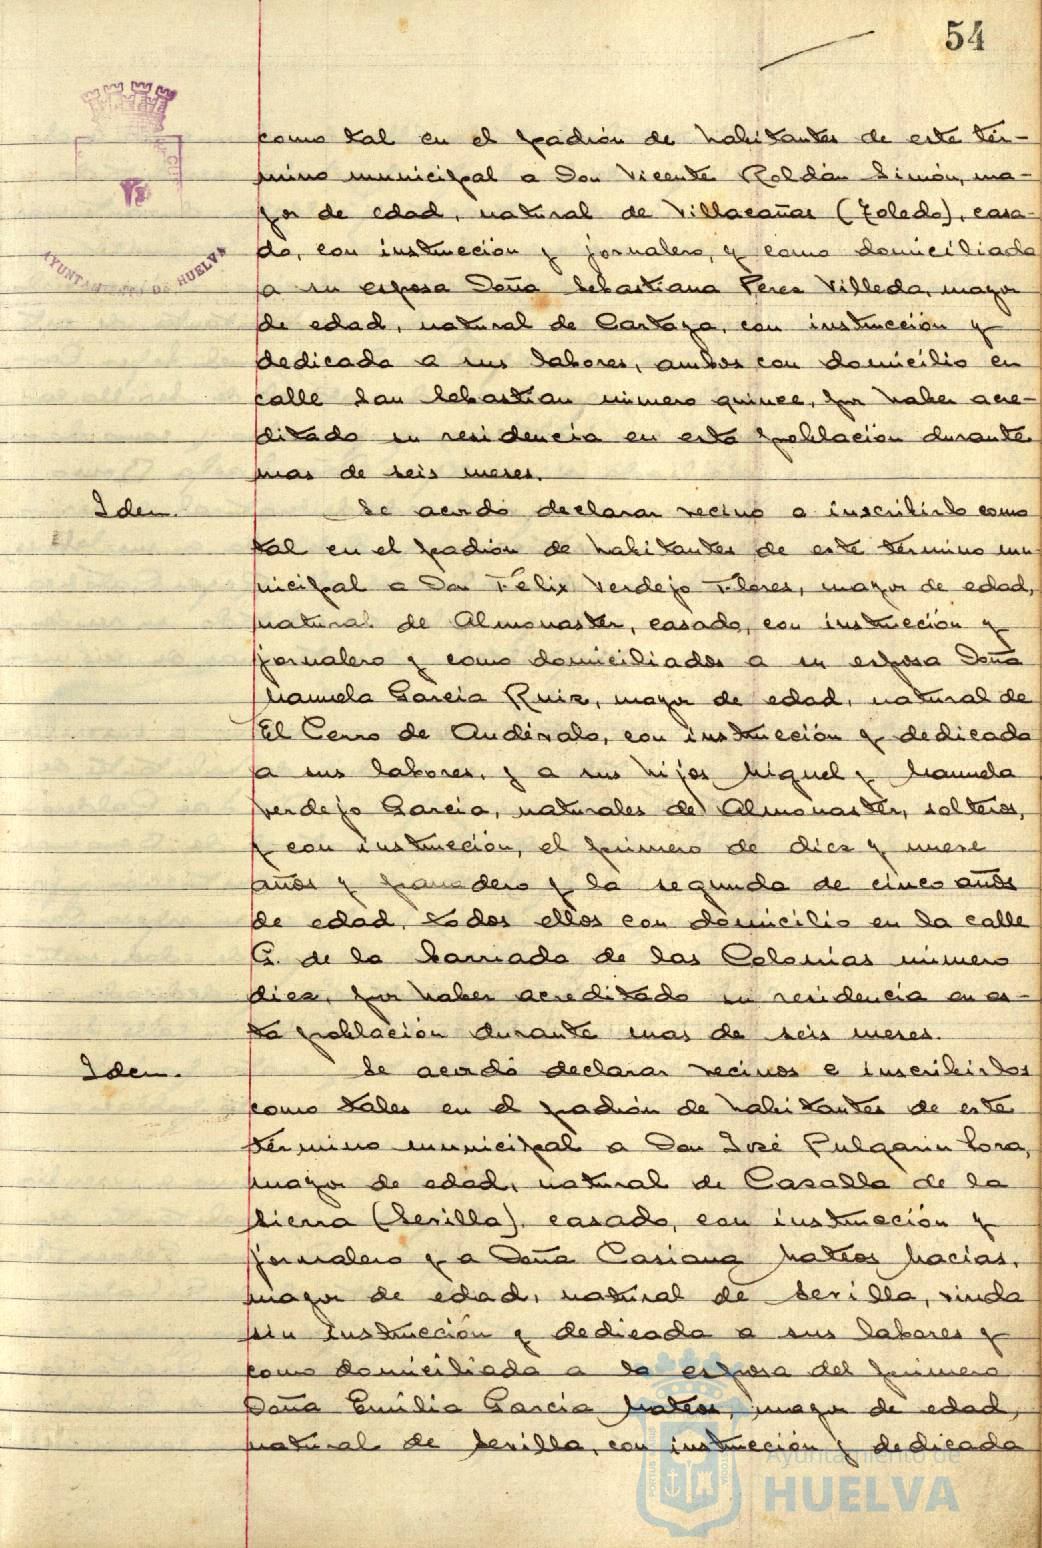 54
como tal en el padrón de habitantes de este tér-
mino municipal a Don Vicente Roldán Simón, ma-
yor de edad, natural de Villacañas (Toledo), casa-
do, con instrucción y jornalero, y como domiciliada
a su esposa Doña Sebastiana Perez Villeda, mayor
de edad, natural de Cartaya, con instrucción y
dedicada a sus labores, ambos con domicilio en
calle San Sebastian número quince, por haber acre-
ditado su residencia en esta población durante
mas de seis meses.
Idem. Se acordó declarar vecino a inscribirlo como
tal en el padrón de habitantes de este término mu-
nicipal a Don Félix Verdejo Flores, mayor de edad,
natural de Almonaster, casado, con instrucción y
jornalero y como domiciliados a su esposa Doña
Manuela García Ruiz, mayor de edad, natural de
El Cerro de Andévalo, con instrucción y dedicada
a sus labores, y a sus hijos Miguel y Manuela
Verdejo García, naturales de Almonaster, solteros,
y con instrucción, el primero de diez y nueve
años y panadero y la segunda de cinco años
de edad, todos ellos con domicilio en la calle
G. de la barriada de las Colonias número
diez, por haber acreditado su residencia en es-
ta población durante mas de seis meses.
Idem. Se acordó declarar vecinos e inscribirlos
como tales en el padrón de habitantes de este
término municipal a Don José Pulgarin Lora,
mayor de edad, natural de Cazalla de la
Sierra (Sevilla), casado, con instrucción y
jornalero y a Doña Casiana Mateos Macías,
mayor de edad, natural de Sevilla, viuda
sin instrucción y dedicada a sus labores y
como domiciliada a la esposa del primero
Doña Emilia García Mateos, mayor de edad,
natural de Sevilla, con instrucción y dedicada
AYUNTAMIENTO DE HUELVA
Ayuntamiento de
HUELVA